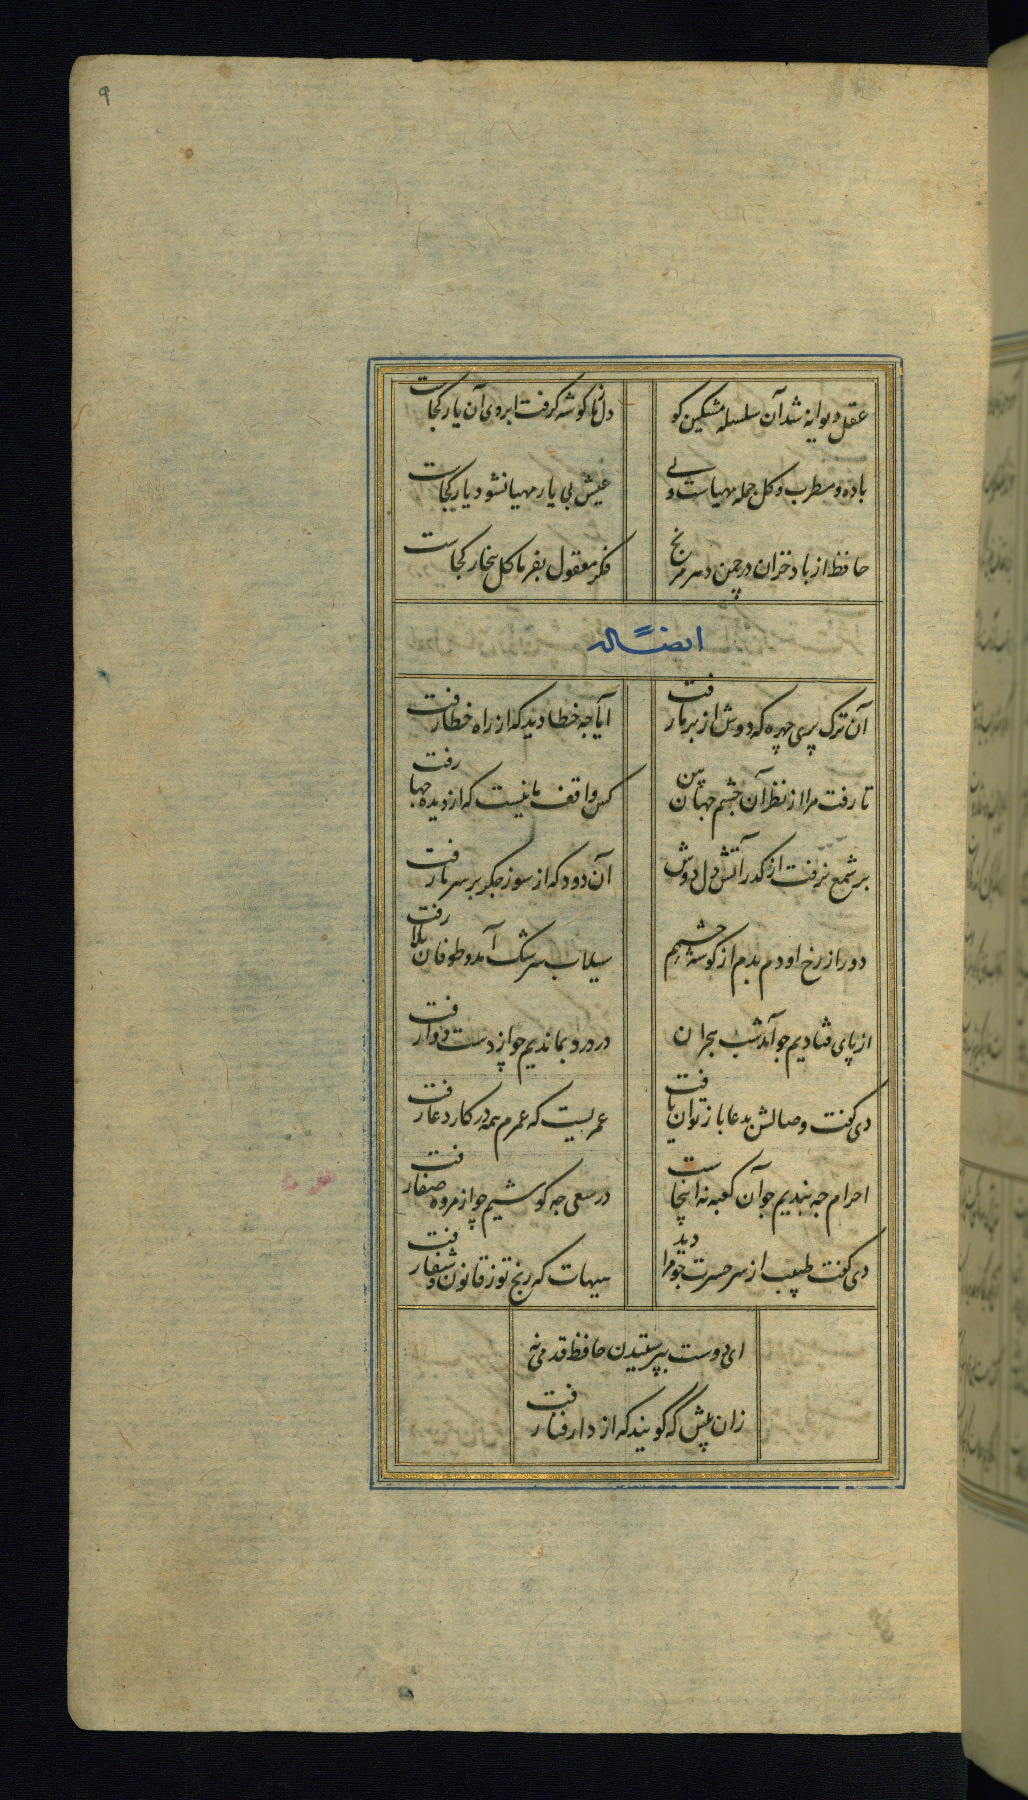 ۹
عقل دیوانه شد آن سلسله مشکین کو
دل ز ما کوشه کرفت ابروی آن یار کجاست
باده و مطرب و کل جمله مهیاست ولی
عیش بی یار مهیا نشود یار کجاست
حافظ از باد خزان در چمن دهر مرنج
فکر معقول بفرما کل بیخار کجاست
ایضاً له
آن ترک پری چهره که دوش از بر ما رفت
ایا جه خطا دید که از راه خطا رفت
تا رفت مرا از نظر آن جشم جهان بین
کس واقف ما نیست که از دیده جها رفت
بر شمع نرفت از کذر آتش دل دوش
آن دود که از سوز جکر بر سر ما رفت
دور از رخ او دم بدم از کوشه جشمم
سیلاب سرشک آمد و طوفان بلا رفت
از پای فتادیم جو آمد شب هجران
در درد بماندیم جو از دست دوا رفت
دی کفت وصالش بدعا باز توان یافت
عمریست که عمرم همه در کار دعا رفت
احرام جه بندیم جو آن کعبه نه اینجاست
در سعی جه کوشیم جو از مروه صفا رفت
دی کفت طبیب از سر حسرت جو مرا دید
هیهات که رنج تو ز قانون شفا رفت
ای دوست بپرسیدن حافظ قدمی نه
زان پیش که گویند که از دار فنا رفت